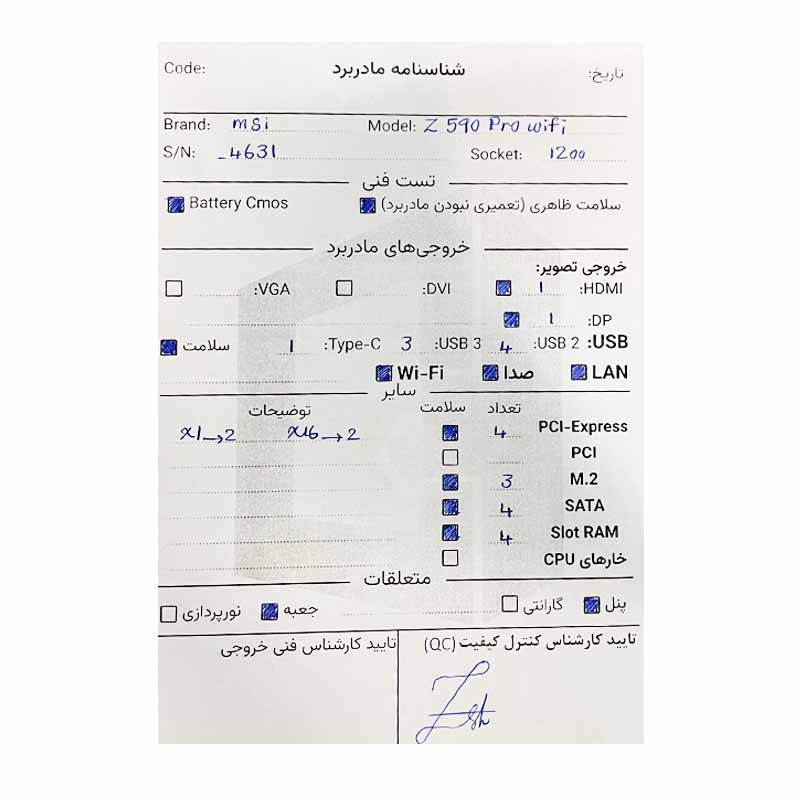 Code: شناسنامه مادربرد تاریخ:
Brand: msi Model: Z 590 Pro wifi
S/N: _4631 Socket: 1200
تست فنی
سلامت ظاهری (تعمیری نبودن مادربرد) Battery Cmos
خروجی‌های مادربرد
خروجی تصویر:
HDMI: 1 DVI: VGA:
DP: 1
USB: USB 2: 4 USB 3: 3 Type-C: 1 سلامت
LAN صدا Wi-Fi
سایر
تعداد سلامت توضیحات
PCI-Express 4 x16→2 x1→2
PCI
M.2 3
SATA 4
Slot RAM 4
خارهای CPU
متعلقات
پنل گارانتی جعبه نورپردازی
تایید کارشناس کنترل کیفیت (QC) تایید کارشناس فنی خروجی